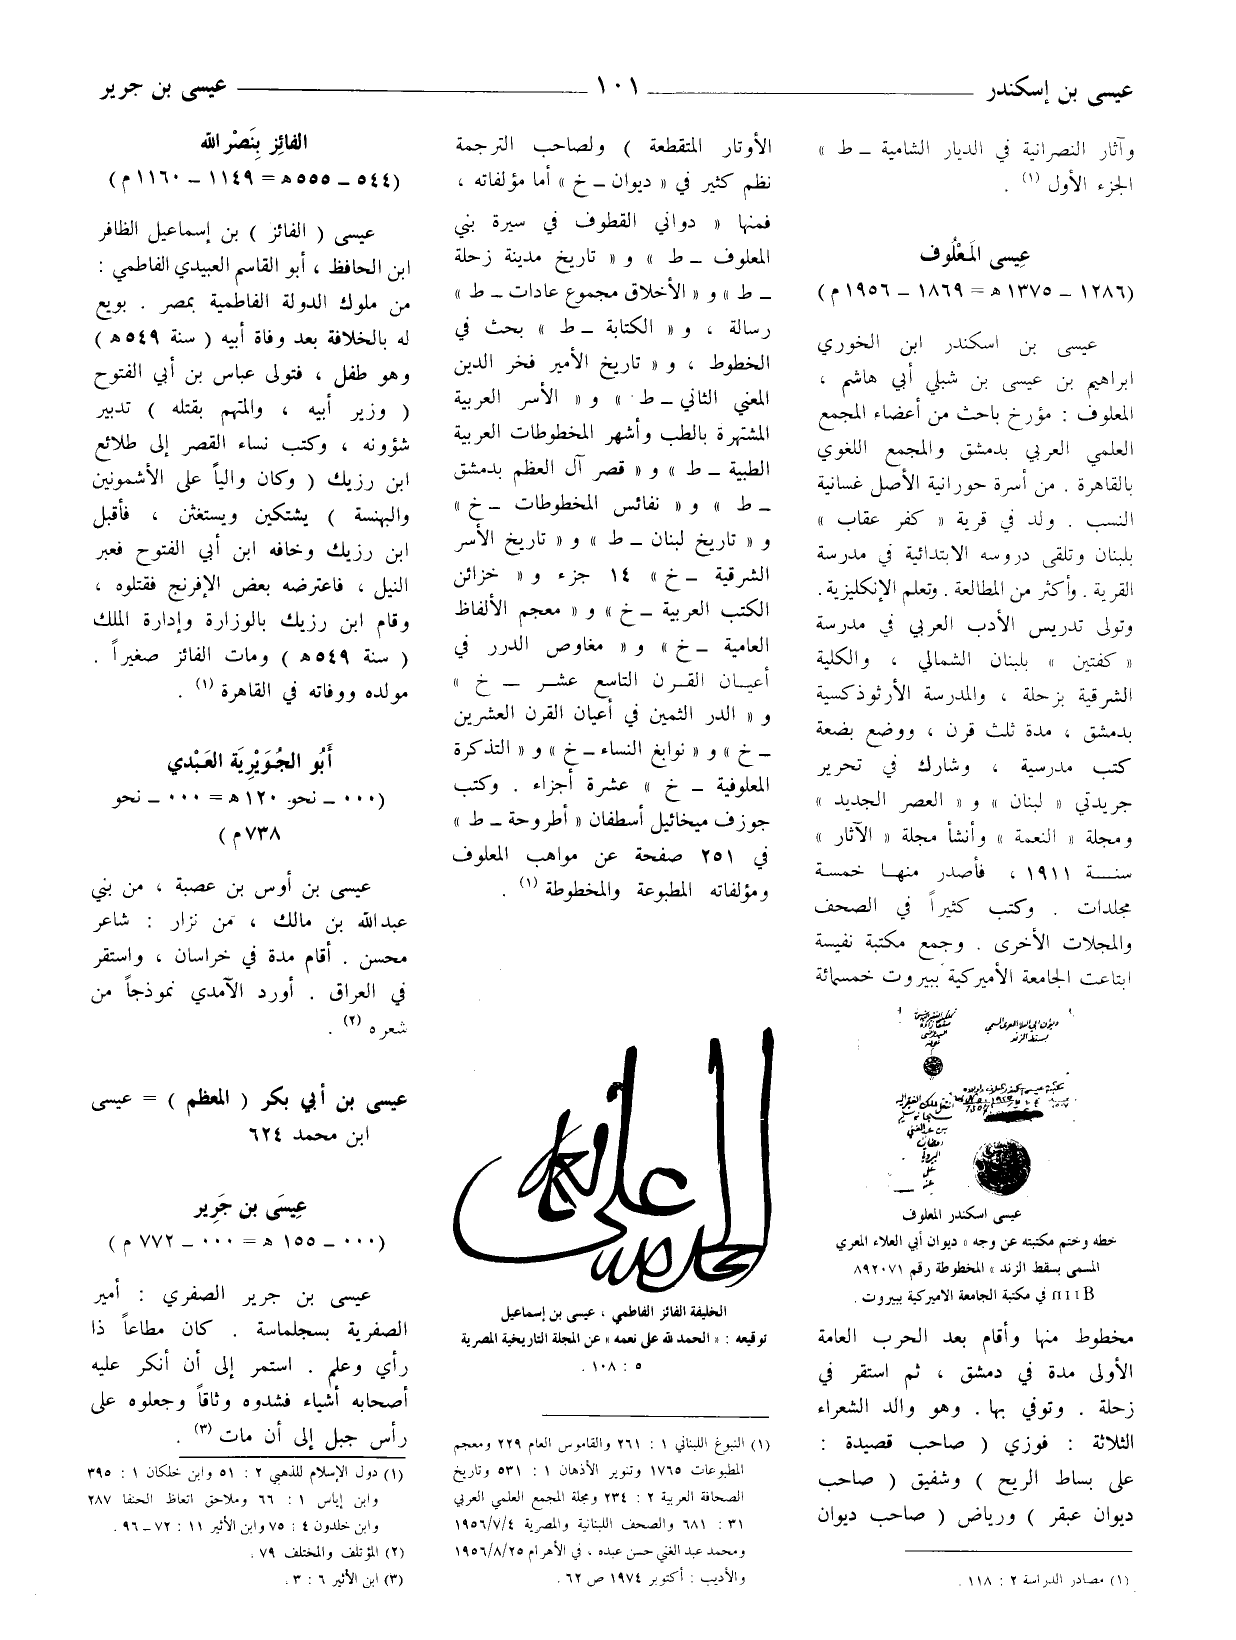 عيسى بن إسكندر ــــ ١٠١ ــــ عيسى بن جرير
وآثار النصرانية في الديار الشامية ـ ط »
الجزء الأول (١) .
عِيسى المَعْلُوف
(١٢٨٦ ـ ١٣٧٥ هـ = ١٨٦٩ ـ ١٩٥٦ م)
عيسى بن اسكندر ابن الخوري
ابراهيم بن عيسى بن شبلي أبي هاشم ،
المعلوف : مؤرخ باحث من أعضاء المجمع
العلمي العربي بدمشق والمجمع اللغوي
بالقاهرة . من أسرة حورانية الأصل غسانية
النسب . ولد في قرية « كفر عقاب »
بلبنان وتلقى دروسه الابتدائية في مدرسة
القرية . وأكثر من المطالعة . وتعلم الإنكليزية .
وتولى تدريس الأدب العربي في مدرسة
« كفتين » بلبنان الشمالي ، والكلية
الشرقية بزحلة ، والمدرسة الأرثوذكسية
بدمشق ، مدة ثلث قرن ، ووضع بضعة
كتب مدرسية ، وشارك في تحرير
جريدتي « لبنان » و « العصر الجديد »
ومجلة « النعمة » وأنشأ مجلة « الآثار »
سنـــة ١٩١١ ، فأصدر منهـا خمسة
مجلدات . وكتب كثيراً في الصحف
والمجلات الأخرى . وجمع مكتبة نفيسة
ابتاعت الجامعة الأميركية ببيروت خمسمائة
عيسى اسكندر المعلوف
خطه وختم مكتبته عن وجه « ديوان أبي العلاء المعري
المسمى بسقط الزند » المخطوطة رقم ٨٩٢٠٧١
١١١B في مكتبة الجامعة الاميركية ببيروت .
مخطوط منها وأقام بعد الحرب العامة
الأولى مدة في دمشق ، ثم استقر في
زحلة . وتوفي بها . وهو والد الشعراء
الثلاثة : فوزي ( صاحب قصيدة :
على بساط الريح ) وشفيق ( صاحب
ديوان عبقر ) ورياض ( صاحب ديوان
(١) مصادر الدراسة ٢ : ١١٨ .
الأوتار المتقطعة ) ولصاحب الترجمة
نظم كثير في « ديوان ـ خ » أما مؤلفاته ،
فمنها « دواني القطوف في سيرة بني
المعلوف ـ ط » و « تاريخ مدينة زحلة
ـ ط » و « الأخلاق مجموع عادات ـ ط »
رسالة ، و « الكتابة ـ ط » بحث في
الخطوط ، و « تاريخ الأمير فخر الدين
المعني الثاني ـ ط » و « الأسر العربية
المشتهرة بالطب وأشهر المخطوطات العربية
الطبية ـ ط » و « قصر آل العظم بدمشق
ـ ط » و « نفائس المخطوطات ـ خ »
و « تاريخ لبنان ـ ط » و « تاريخ الأسر
الشرقية ـ خ » ١٤ جزء و « خزائن
الكتب العربية ـ خ » و « معجم الألفاظ
العامية ـ خ » و « مغاوص الدرر في
أعيـان القـرن التاسع عشـر ـ خ »
و « الدر الثمين في أعيان القرن العشرين
ـ خ » و « نوابغ النساء ـ خ » و « التذكرة
المعلوفية ـ خ » عشرة أجزاء . وكتب
جوزف ميخائيل أسطفان « أطروحة ـ ط »
في ٢٥١ صفحة عن مواهب المعلوف
ومؤلفاته المطبوعة والمخطوطة (١) .
الحمد لله على نعمه
الخليفة الفائز الفاطمي ، عيسى بن إسماعيل
توقيعه : « الحمد لله على نعمه » عن المجلة التاريخية المصرية
٥ : ١٠٨ .
(١) النبوغ اللبناني ١ : ٢٦١ والقاموس العام ٢٢٩ ومعجم
المطبوعات ١٧٦٥ وتنوير الأذهان ١ : ٥٣١ وتاريخ
الصحافة العربية ٢ : ٢٣٤ ومجلة المجمع العلمي العربي
٣١ : ٦٨١ والصحف اللبنانية والمصرية ١٩٥٦/٧/٤
ومحمد عبد الغني حسن عبده ، في الأهرام ١٩٥٦/٨/٢٥
والأديب : أكتوبر ١٩٧٤ ص ٦٢ .
الفائِز بِنَصْر الله
(٥٤٤ ـ ٥٥٥ هـ = ١١٤٩ ـ ١١٦٠ م)
عيسى ( الفائز ) بن إسماعيل الظافر
ابن الحافظ ، أبو القاسم العبيدي الفاطمي :
من ملوك الدولة الفاطمية بمصر . بويع
له بالخلافة بعد وفاة أبيه ( سنة ٥٤٩ هـ )
وهو طفل ، فتولى عباس بن أبي الفتوح
( وزير أبيه ، والمتهم بقتله ) تدبير
شؤونه ، وكتب نساء القصر إلى طلائع
ابن رزيك ( وكان والياً على الأشمونين
والبهنسة ) يشتكين ويستغثن ، فأقبل
ابن رزيك وخافه ابن أبي الفتوح فعبر
النيل ، فاعترضه بعض الإفرنج فقتلوه ،
وقام ابن رزيك بالوزارة وإدارة الملك
( سنة ٥٤٩ هـ ) ومات الفائز صغيراً .
مولده ووفاته في القاهرة (١) .
أَبُو الجُوَيْرِيَة العَبْدي
(٠٠٠ ـ نحو ١٢٠ هـ = ٠٠٠ ـ نحو
٧٣٨ م )
عيسى بن أوس بن عصبة ، من بني
عبد الله بن مالك ، من نزار : شاعر
محسن . أقام مدة في خراسان ، واستقر
في العراق . أورد الآمدي نموذجاً من
شعره (٢) .
عيسى بن أبي بكر ( المعظم ) = عيسى
ابن محمد ٦٢٤
عِيسَى بن جَرِير
(٠٠٠ ـ ١٥٥ هـ = ٠٠٠ ـ ٧٧٢ م )
عيسى بن جرير الصفري : أمير
الصفرية بسجلماسة . كان مطاعاً ذا
رأي وعلم . استمر إلى أن أنكر عليه
أصحابه أشياء فشدوه وثاقاً وجعلوه على
رأس جبل إلى أن مات (٣) .
(١) دول الإسلام للذهبي ٢ : ٥١ وابن خلكان ١ : ٣٩٥
وابن إياس ١ : ٦٦ وملاحق اتعاظ الحنفا ٢٨٧
وابن خلدون ٤ : ٧٥ وابن الأثير ١١ : ٧٢ ـ ٩٦ .
(٢) المؤتلف والمختلف ٧٩ .
(٣) ابن الأثير ٦ : ٣ .